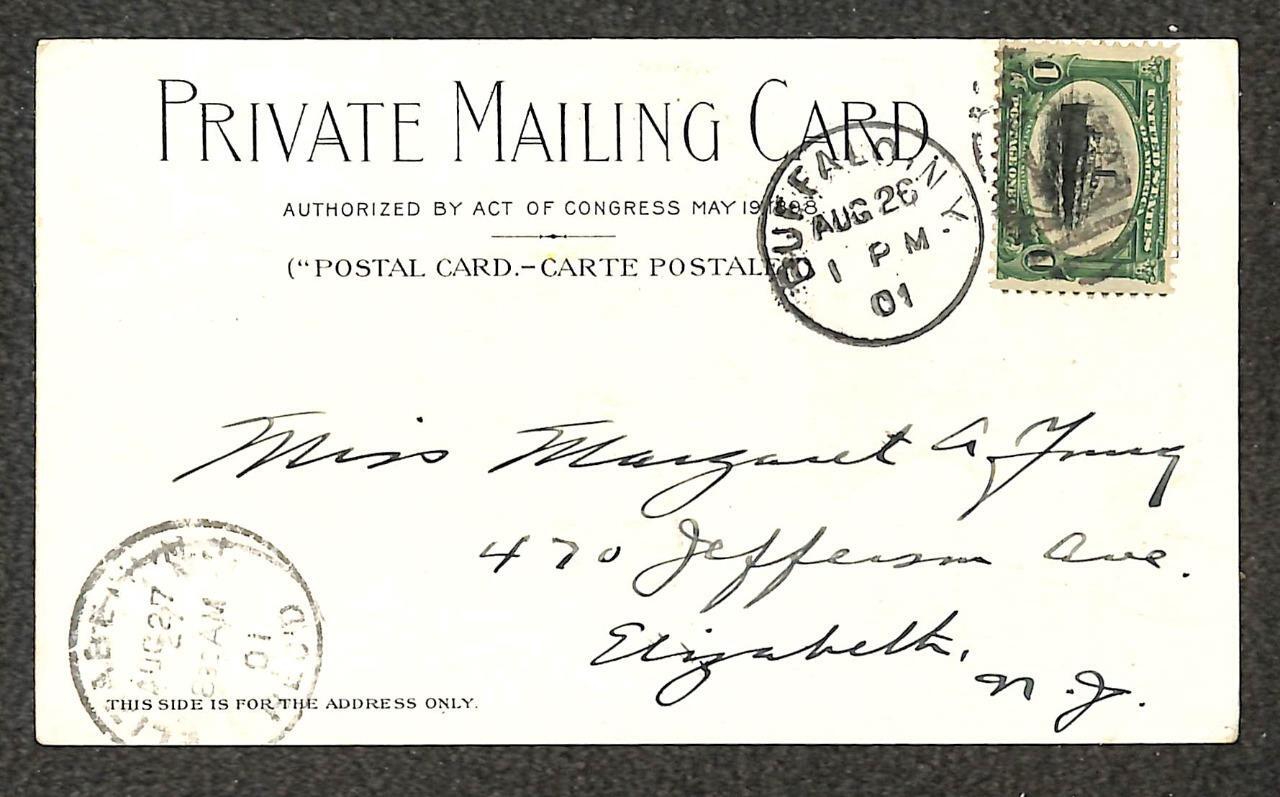 PRIVATE MAILING CARD
AUTHORIZED BY ACT OF CONGRESS MAY 19 1898
("POSTAL CARD.–CARTE POSTALE
BUFFALO, N.Y.
AUG 26
1 PM
01
1
UNITED STATES
OF AMERICA
POSTAGE ONE
1
Miss Margaret A Young
470 Jefferson Ave.
Elizabeth,
N.J.
AUG 27
AM
01
REC'D
THIS SIDE IS FOR THE ADDRESS ONLY.